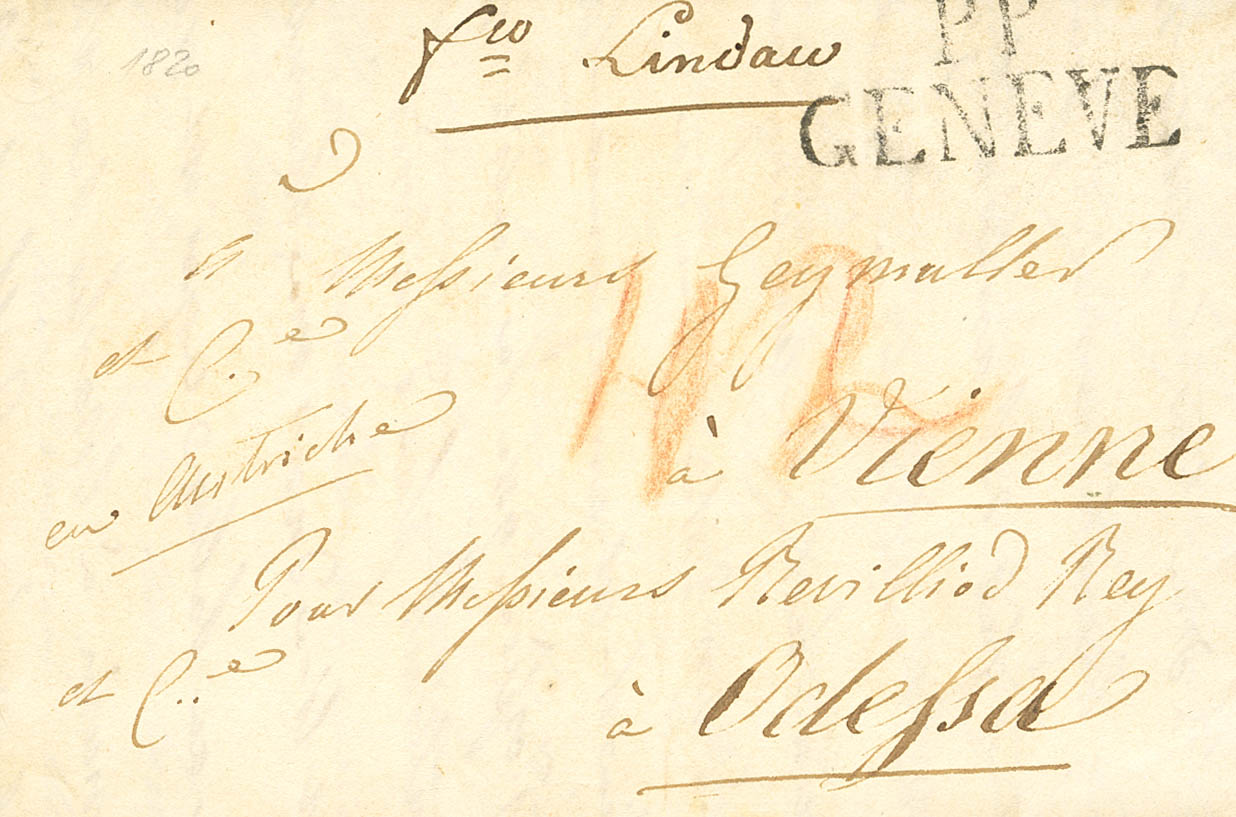 1820
fco Lindau
PP
GENEVE
à Messieurs Geymuller
et C.e
à Vienne
en Autriche
Pour Messieurs Revilliod Rey
et C.e
à Odessa